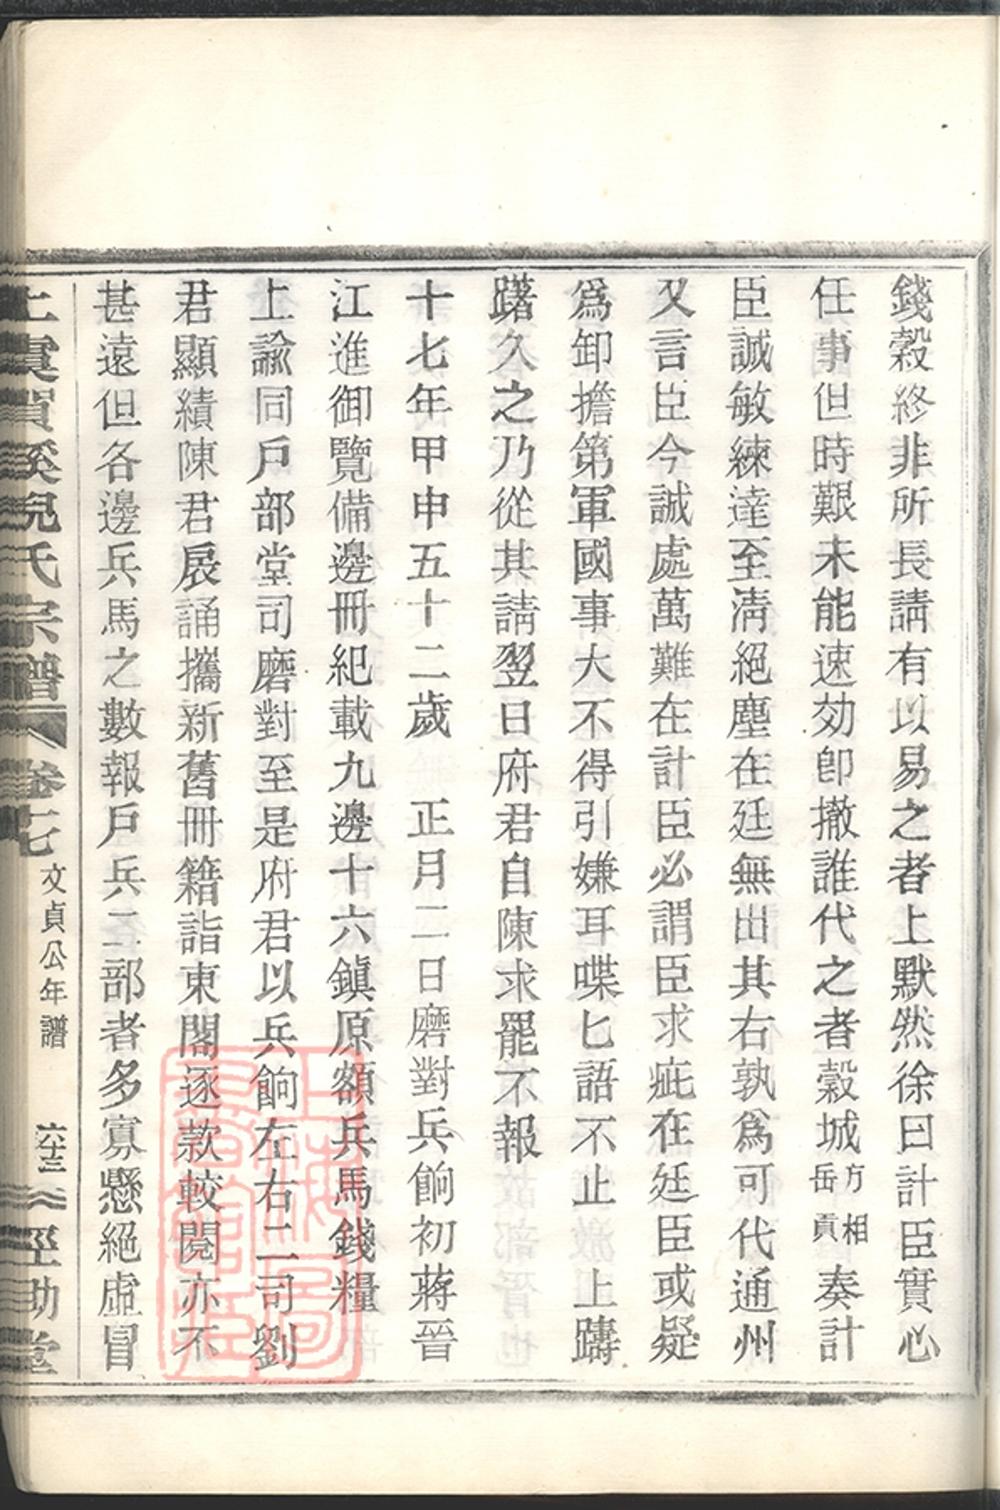 錢穀終非所長請有以易之者上默然徐曰計臣實心
任事但時艱未能速効卽撤誰代之者穀城方相岳貢奏計
臣誠敏練達至淸絕塵在廷無出其右孰爲可代通州
又言臣今誠處萬難在計臣必謂臣求疵在廷臣或疑
爲卸擔第軍國事大不得引嫌耳喋匕語不止　上躊
躇久之乃從其請翌日府君自陳求罷不報
十七年甲申五十二歲　正月二日磨對兵餉初蔣晉
江進御覽備邊冊紀載九邊十六鎭原額兵馬錢糧
上諭同戶部堂司磨對至是府君以兵餉左右二司劉
君顯績陳君扆誦攜新舊冊籍詣東閣逐款較閱亦不
甚遠但各邊兵馬之數報戶兵二部者多寡懸絕虛冒
上虞賀溪倪氏宗譜　卷七　文貞公年譜　六十三　經助堂